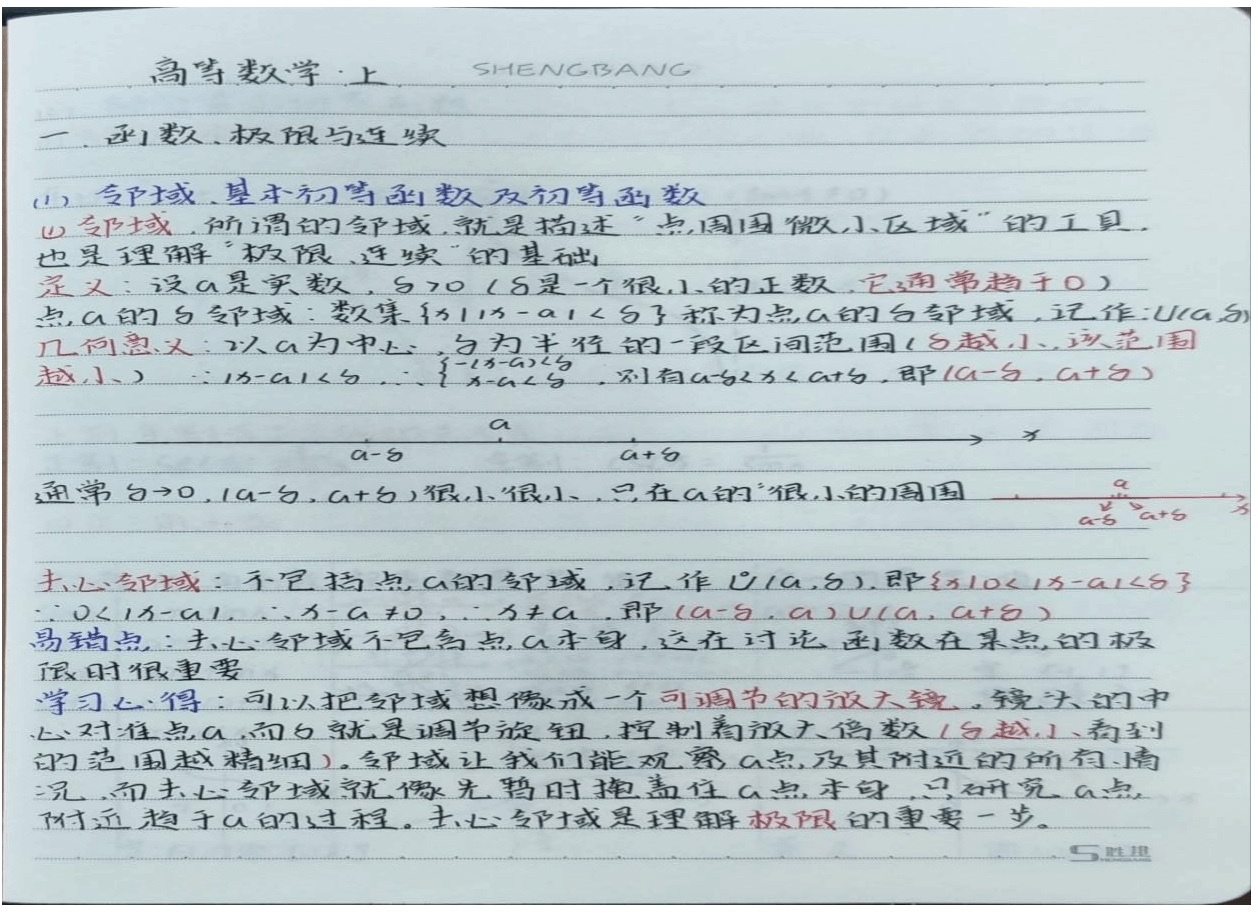 高等数学·上 SHENGBANG
一、函数、极限与连续
(1) 邻域、基本初等函数及初等函数
(1) 邻域,所谓的邻域,就是描述“点周围微小区域”的工具,
也是理解“极限、连续”的基础
定义:设a是实数,δ>0(δ是一个很小的正数,它通常趋于0)
点a的δ邻域:数集{x||x-a|<δ}称为点a的δ邻域,记作:U(a,δ)
几何意义:以a为中心,δ为半径的一段区间范围(δ越小,该范围
越小) ∵|x-a|<δ,∴{-(x-a)<δ x-a<δ,则有a-δ<x<a+δ,即(a-δ,a+δ)
a
a-δ a+δ x
通常δ→0,(a-δ,a+δ)很小很小,只在a的“很小的周围
a
a-δ a+δ x
去心邻域:不包括点a的邻域,记作Ů(a,δ),即{x|0<|x-a|<δ}
∵0<|x-a|,∴x-a≠0,∴x≠a,即(a-δ,a)∪(a,a+δ)
易错点:去心邻域不包含点a本身,这在讨论函数在某点的极
限时很重要
学习心得:可以把邻域想像成一个可调节的放大镜,镜头的中
心对准点a,而δ就是调节旋钮,控制着放大倍数(δ越小,看到
的范围越精细)。邻域让我们能观察a点及其附近的所有情
况,而去心邻域就像先暂时掩盖住a点本身,只研究a点
附近趋于a的过程。去心邻域是理解极限的重要一步。
胜邦
SHENGBANG